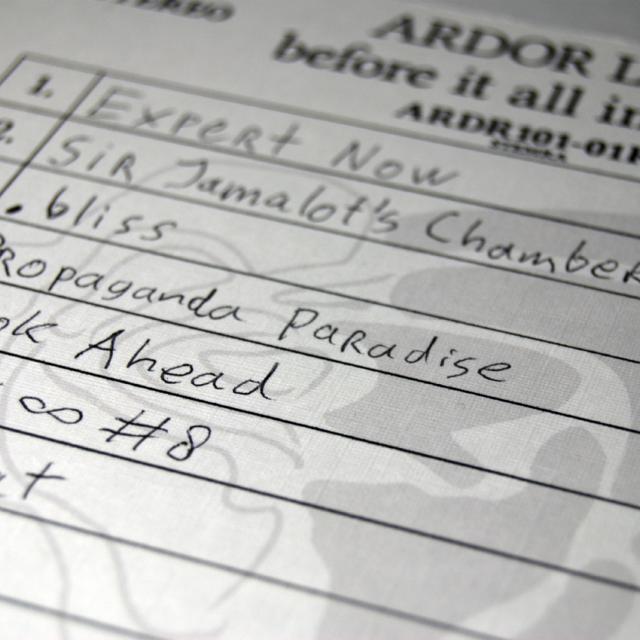 ARDOR
before it all
ARDR101-01
1. Expert Now
2. Sir Jamalot's Chamber
. bliss
Propaganda Paradise
Ahead
∞ #8